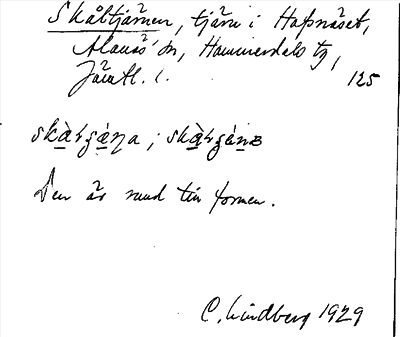 Skåltjärnen, tjärn i Hafsnäset,
Alanäs sn, Hammerdals tg,
Jämtl. l. 125
Den är rund till formen.
C. Lindberg 1929